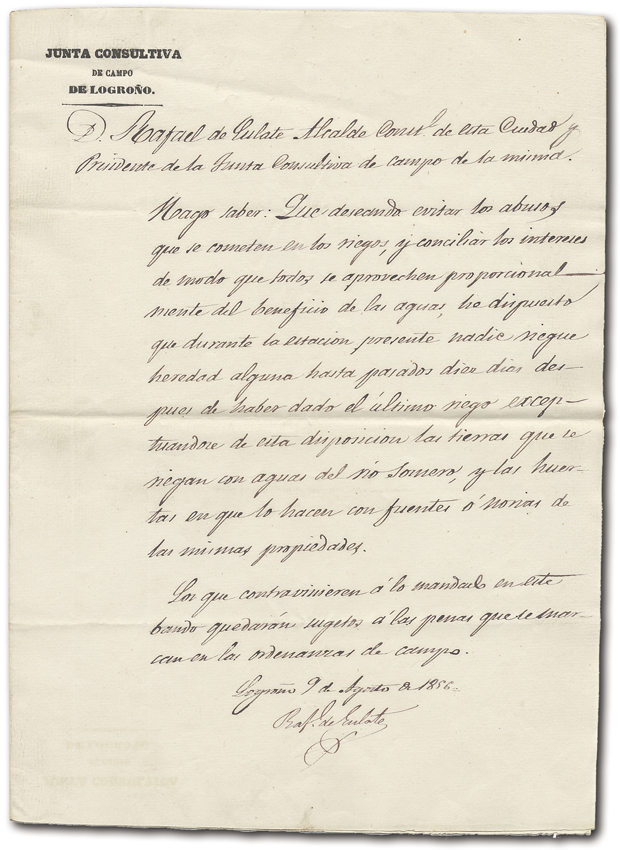 JUNTA CONSULTIVA
DE CAMPO
DE LOGROÑO.
D. Rafael de Eulate Alcalde Const.l de esta Ciudad y
Presidente de la Junta Consultiva de campo de la misma.
Hago saber: Que deseando evitar los abusos
que se cometen en los riegos, y conciliar los intereses
de modo que todos se aprovechen proporcional-
mente del beneficio de las aguas, he dispuesto
que durante la estacion presente nadie riegue
heredad alguna hasta pasados diez dias des-
pues de haber dado el último riego excep-
tuandose de esta disposicion las tierras que se
riegan con aguas del río Somero, y las huer-
tas en que lo hacen con fuentes ó norias de
las mismas propiedades.
Los que contravinieren á lo mandado en este
bando quedarán sugetos á las penas que se mar-
can en las ordenanzas de campo.
Logroño 9 de Agosto de 1856.
Raf.l de Eulate